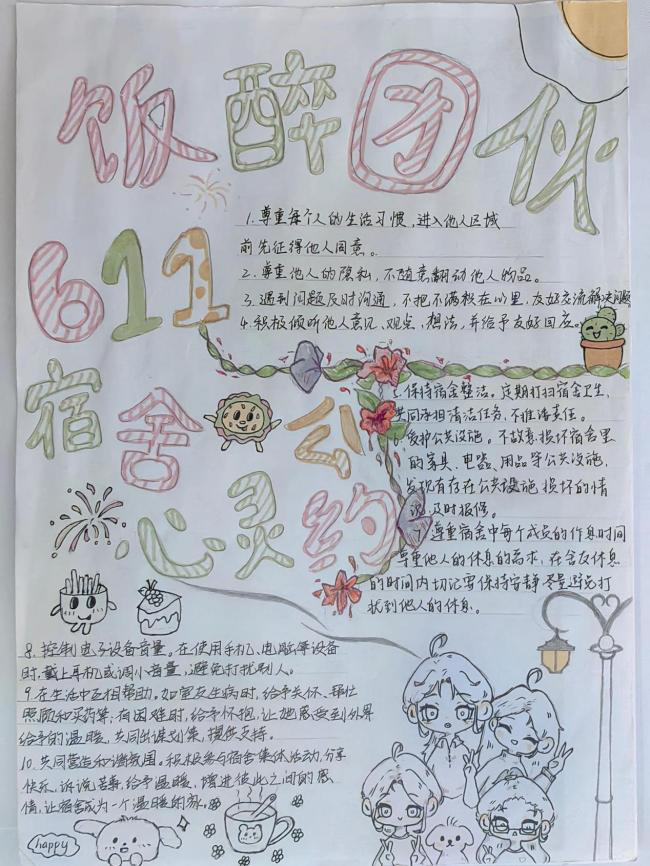 饭醉团伙
611
宿舍公约
心灵
1. 尊重每个人的生活习惯,进入他人区域
前先征得他人同意。
2. 尊重他人的隐私,不随意翻动他人物品。
3. 遇到问题及时沟通,不把不满积在心里,友好交流解决问题
4. 积极倾听他人意见、观点、想法,并给予友好回应。
5. 保持宿舍整洁。定期打扫宿舍卫生,
共同承担清洁任务,不推诿责任。
6. 爱护公共设施。不故意损坏宿舍里
的家具、电器、用品等公共设施,
发现有存在公共设施损坏的情
况及时报修。
7. 尊重宿舍中每个成员的作息时间
尊重他人的休息的需求,在舍友休息
的时间内切记要保持安静尽量避免打
扰到他人的休息。
8. 控制电子设备音量。在使用手机、电脑等设备
时,戴上耳机或调小音量,避免打扰别人。
9. 在生活中互相帮助。如室友生病时,给予关怀、帮忙
照顾和买药等;有困难时,给予怀抱,让她感受到外界
给予的温暖,共同出谋划策,提供支持。
10. 共同营造和谐氛围。积极参与宿舍集体活动,分享
快乐、诉说苦事,给予温暖,增进彼此之间的感
情,让宿舍成为一个温暖的家。
happy